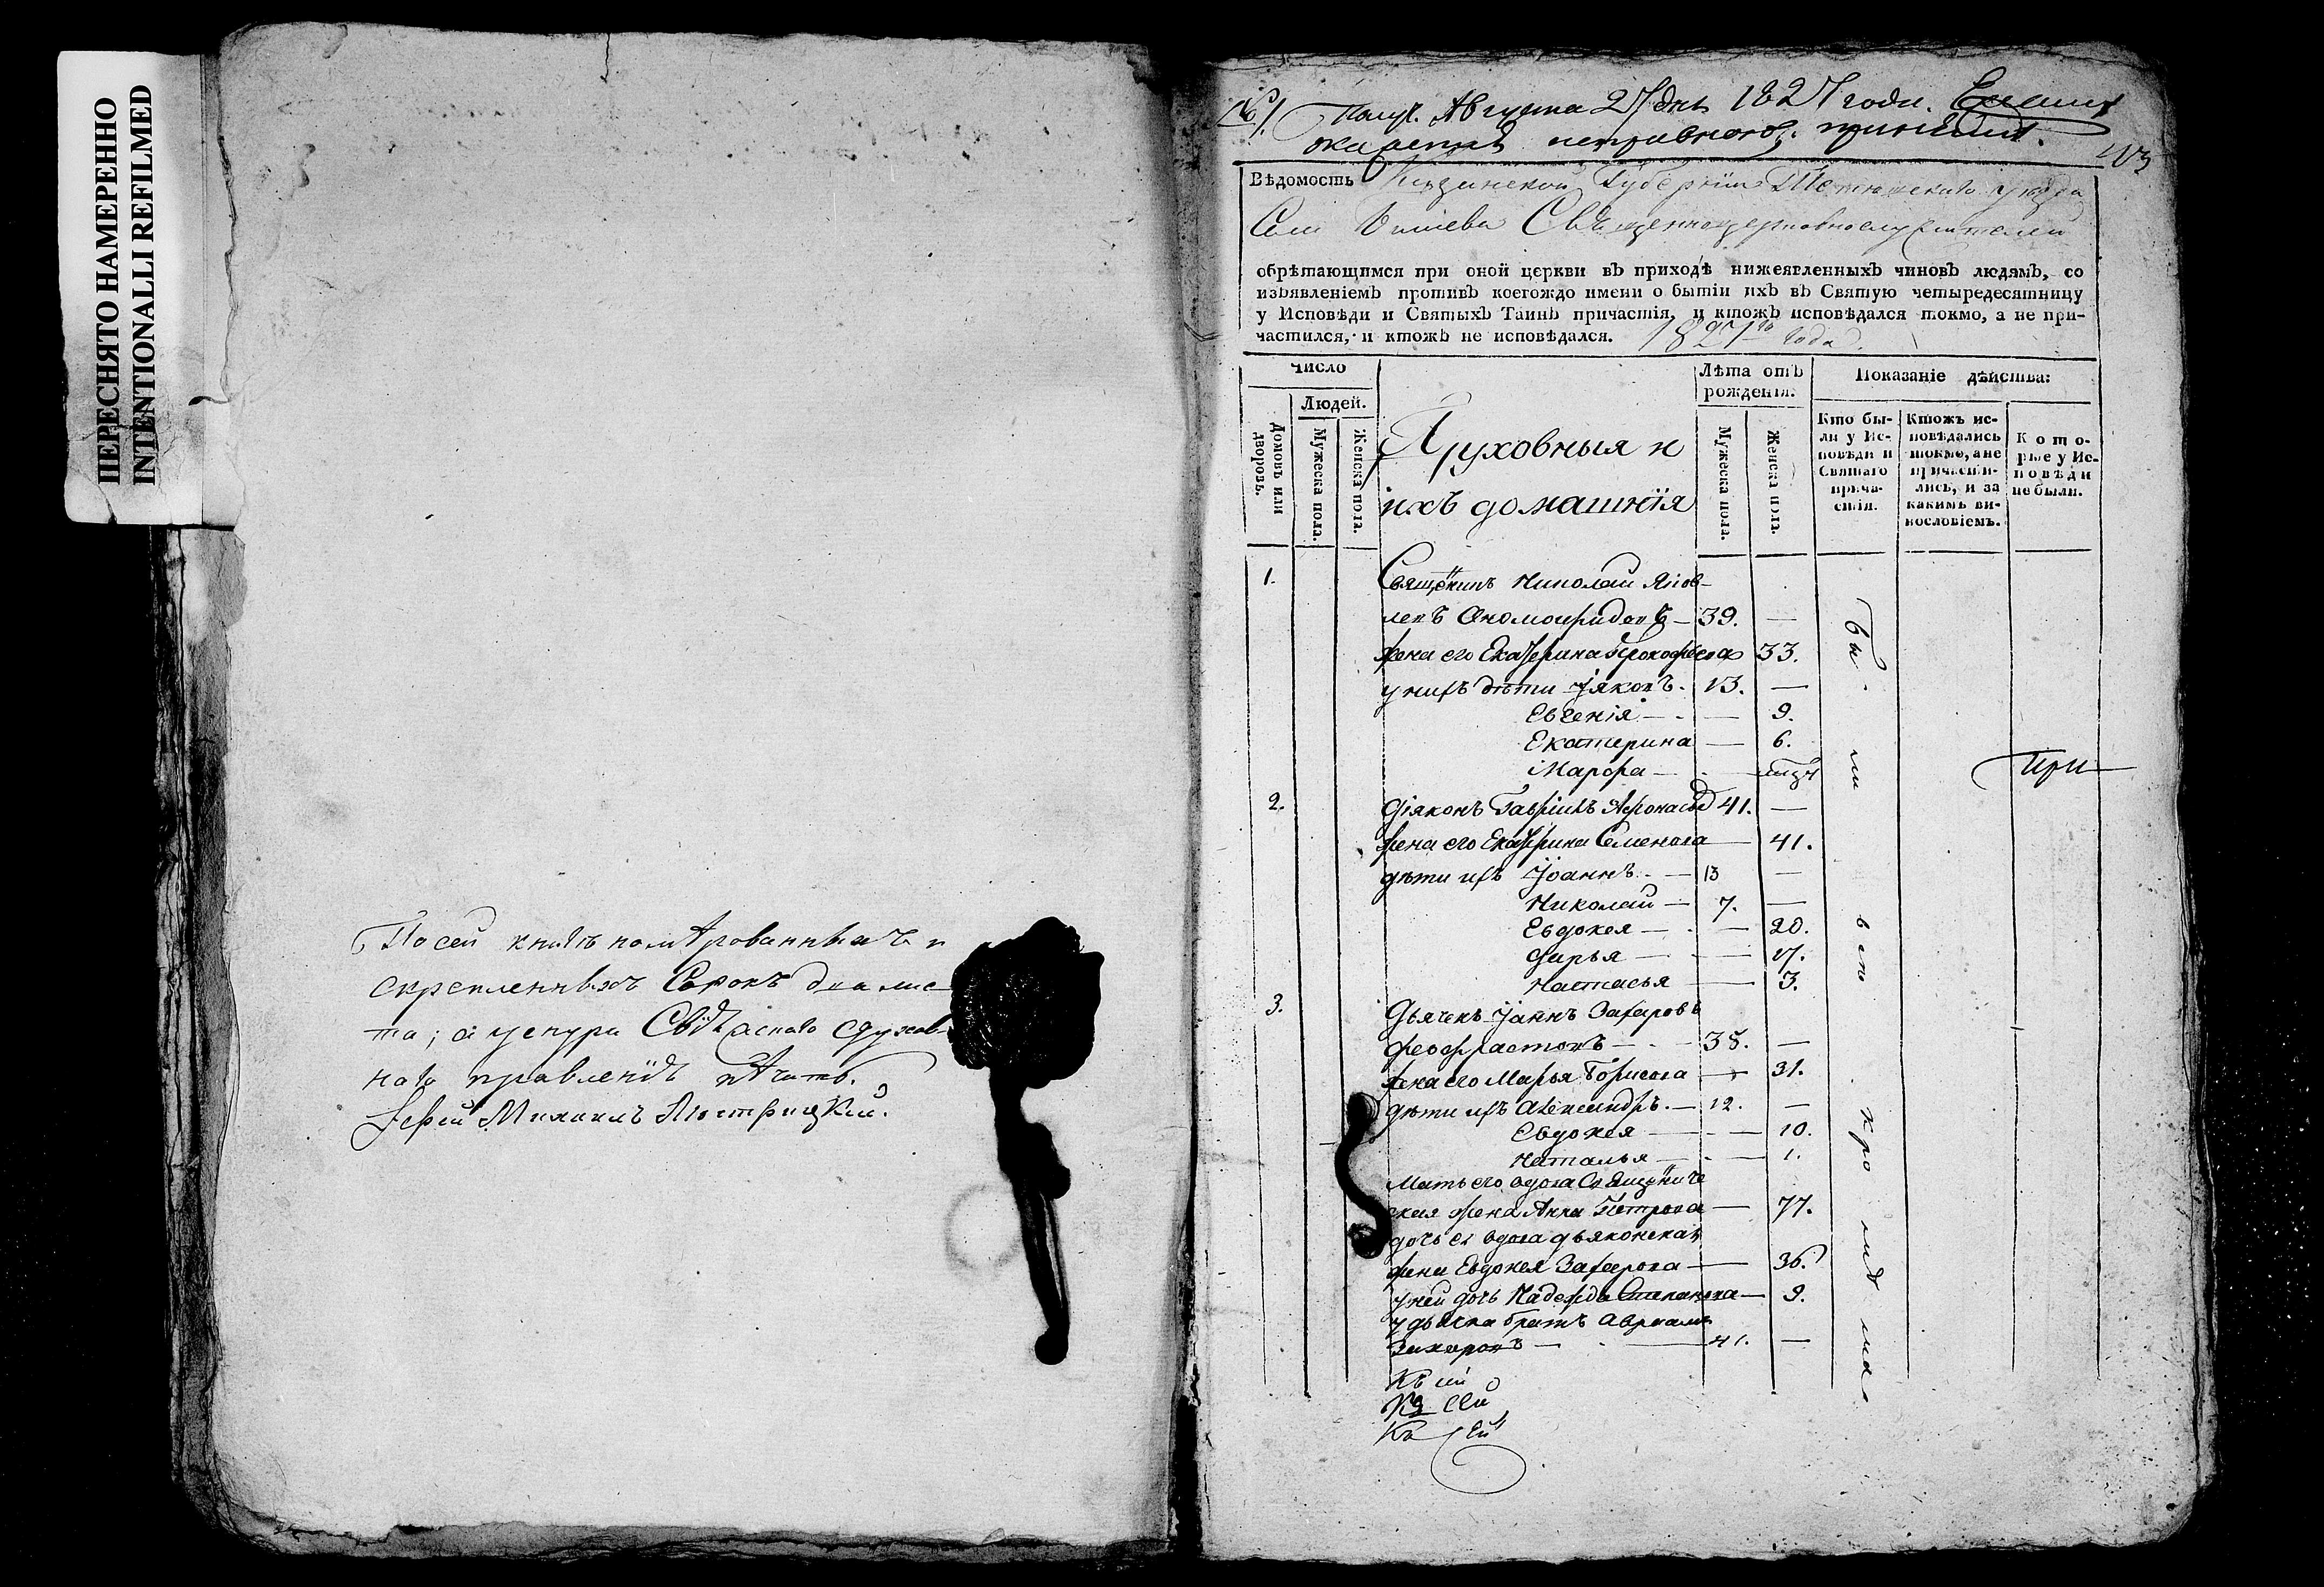 ПЕРЕСНЯТО НАМЕРЕННО
INTENTIONALLI REFILMED
По сей книгѣ номѣрованныхъ и
скрепленныхъ Сорокъ два лис-
та; а уснура Свіѣжскаго духов-
наго правленія пѣчать.
Іерей Михаилъ
№
Августа 27 дня 1827 года.
Вѣдомость Казанской Губерніи Тетюшскаго уѣзда
Села Священноцерковнослужители
обрѣтающимся при оной церкви въ приходѣ нижеявленныхъ чиновъ людямъ, со
изъявленіемъ противъ коегождо имени о бытіи ихъ въ Святую четыредесятницу
у Исповѣди и Святыхъ Таинъ причастія, и ктожъ исповѣдался токмо, а не при-
частился, и ктожъ не исповѣдался. 1827го года.
Число
Людей.
Домовъ или дворовъ.
Мужеска пола.
Женска пола.
Духовныя и
ихъ домашнія
Лѣта отъ
рожденія.
Мужеска пола.
Женска пола.
Показаніе дѣйства:
Кто бы-
ли у Ис-
повѣди и
Святаго
прича-
стія.
Ктожъ ис-
повѣдались
токмо, а не
причасти-
лись, и за
какимъ ви-
нословіемъ.
Кото-
рые у Ис-
повѣди
не были.
1. Священникъ Николай Яков-
левъ 39. —
жена его Екатерина Прокофьева 33.
у нихъ дѣти Іяковъ. 13. —
Евгенія — — 9.
Екатерина — 6.
Марфа —
При
2. Діяконъ Гавріилъ Афонасьев 41. —
жена его Екатерина Семенова — 41.
дѣти ихъ Іоаннъ. — 13 —
Николай — 7. —
Евдокея — — 20.
Дарья — — 17.
Настасья — 3.
3. Дьячекъ Іоаннъ Захаровъ
Феофрастовъ — 38. —
жена его Марья Борисова — 31.
дѣти ихъ Александръ. — 12. —
Евдокея — — 10.
Наталья — — 1.
Мать его вдова Священиче
ская жена Анна Петрова — 77.
дочь ея вдова дьяконская
жена Евдокея Захарова — 36.
у ней дочь Надежда Степанова — 9.
у дьячка братъ Авраамъ
Захаровъ — — 41. —
Къ сей
Къ сей
Къ сей